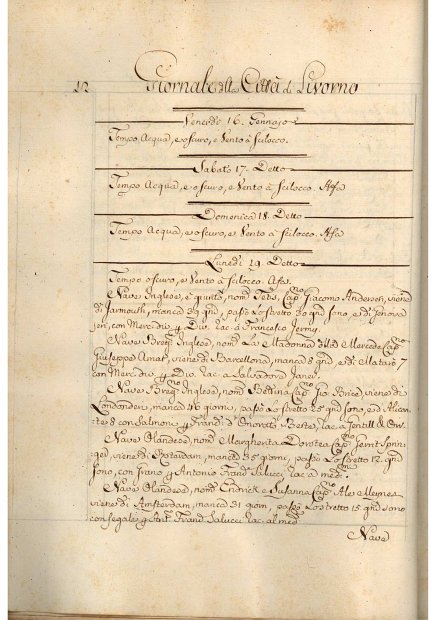 12 Giornale della Città di Livorno
Venerdì 16. Gennajo
Tempo Acqua, e oscuro, e Vento à Scilocco.
Sabato 17. Detto
Tempo Acqua, e oscuro, e Vento à Scilocco. Afa
Domenica 18. Detto
Tempo Acqua, e oscuro, e Vento à Scilocco. Afa
Lunedì 19. Detto
Tempo oscuro, e Vento à Scilocco. Afa.
Nave Inglese, è giunta, nom.ta Tetis, Cap.no Giacomo Andersen, viene
di Jarmouth, manca 39 gni, passò Lo stretto 30 gni sono, e di Genova
jeri, con Merci di y Div. rac. à Francesco Jermy.
Nave Breg.no Inglese, nom.ta La Madonna della Mercede, Cap.no
Giuseppe Amat, viene di Barcellona, manca 8 gni, e di Mataro 7
con Merci di y Div. rac. à Salvadore Janer.
Nave Breg.no Inglese, nom.ta Bettina, Cap.no Gio Brice, viene di
Londonderi, manca 46 giorni, passò Lo stretto 25 gni sono, e d'Alican-
te 8 con Salmone y Franc. d'Onorato Bertet, rac. a
Nave Olandese, nom.ta Margherita Dorotea, Cap.no
viene di Roterdam, manca 35 giorni, passò Lo stretto 12. gni
sono, con grano y Antonio Franc. Salucci rac. a med.mo
Nave Olandese, nom.ta Endrick e Susanna, Cap.no Ales
viene di Amsterdam, manca 31 giorni, passò Lo stretto 15 gni sono
con segale y Ant. Franc. Salucci rac. al med.mo
Nave